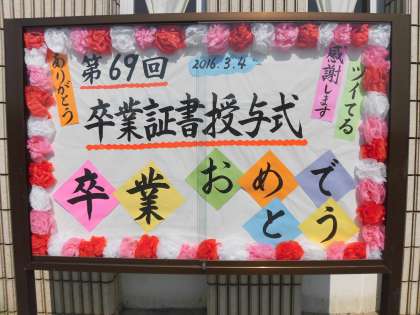 ありがとう
第69回
2016.3.4.
感謝します
ツイてる
卒業証書授与式
卒業おめでとう